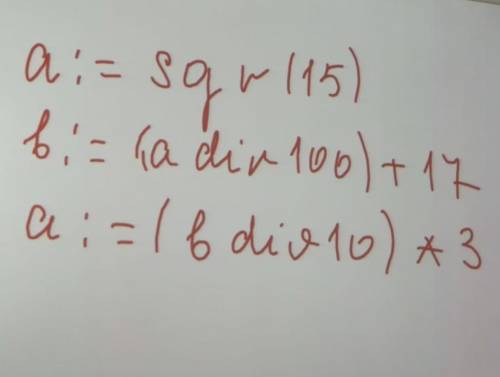 a := sqr(15)
b := (a div 100) + 17
a := (b div 10) * 3